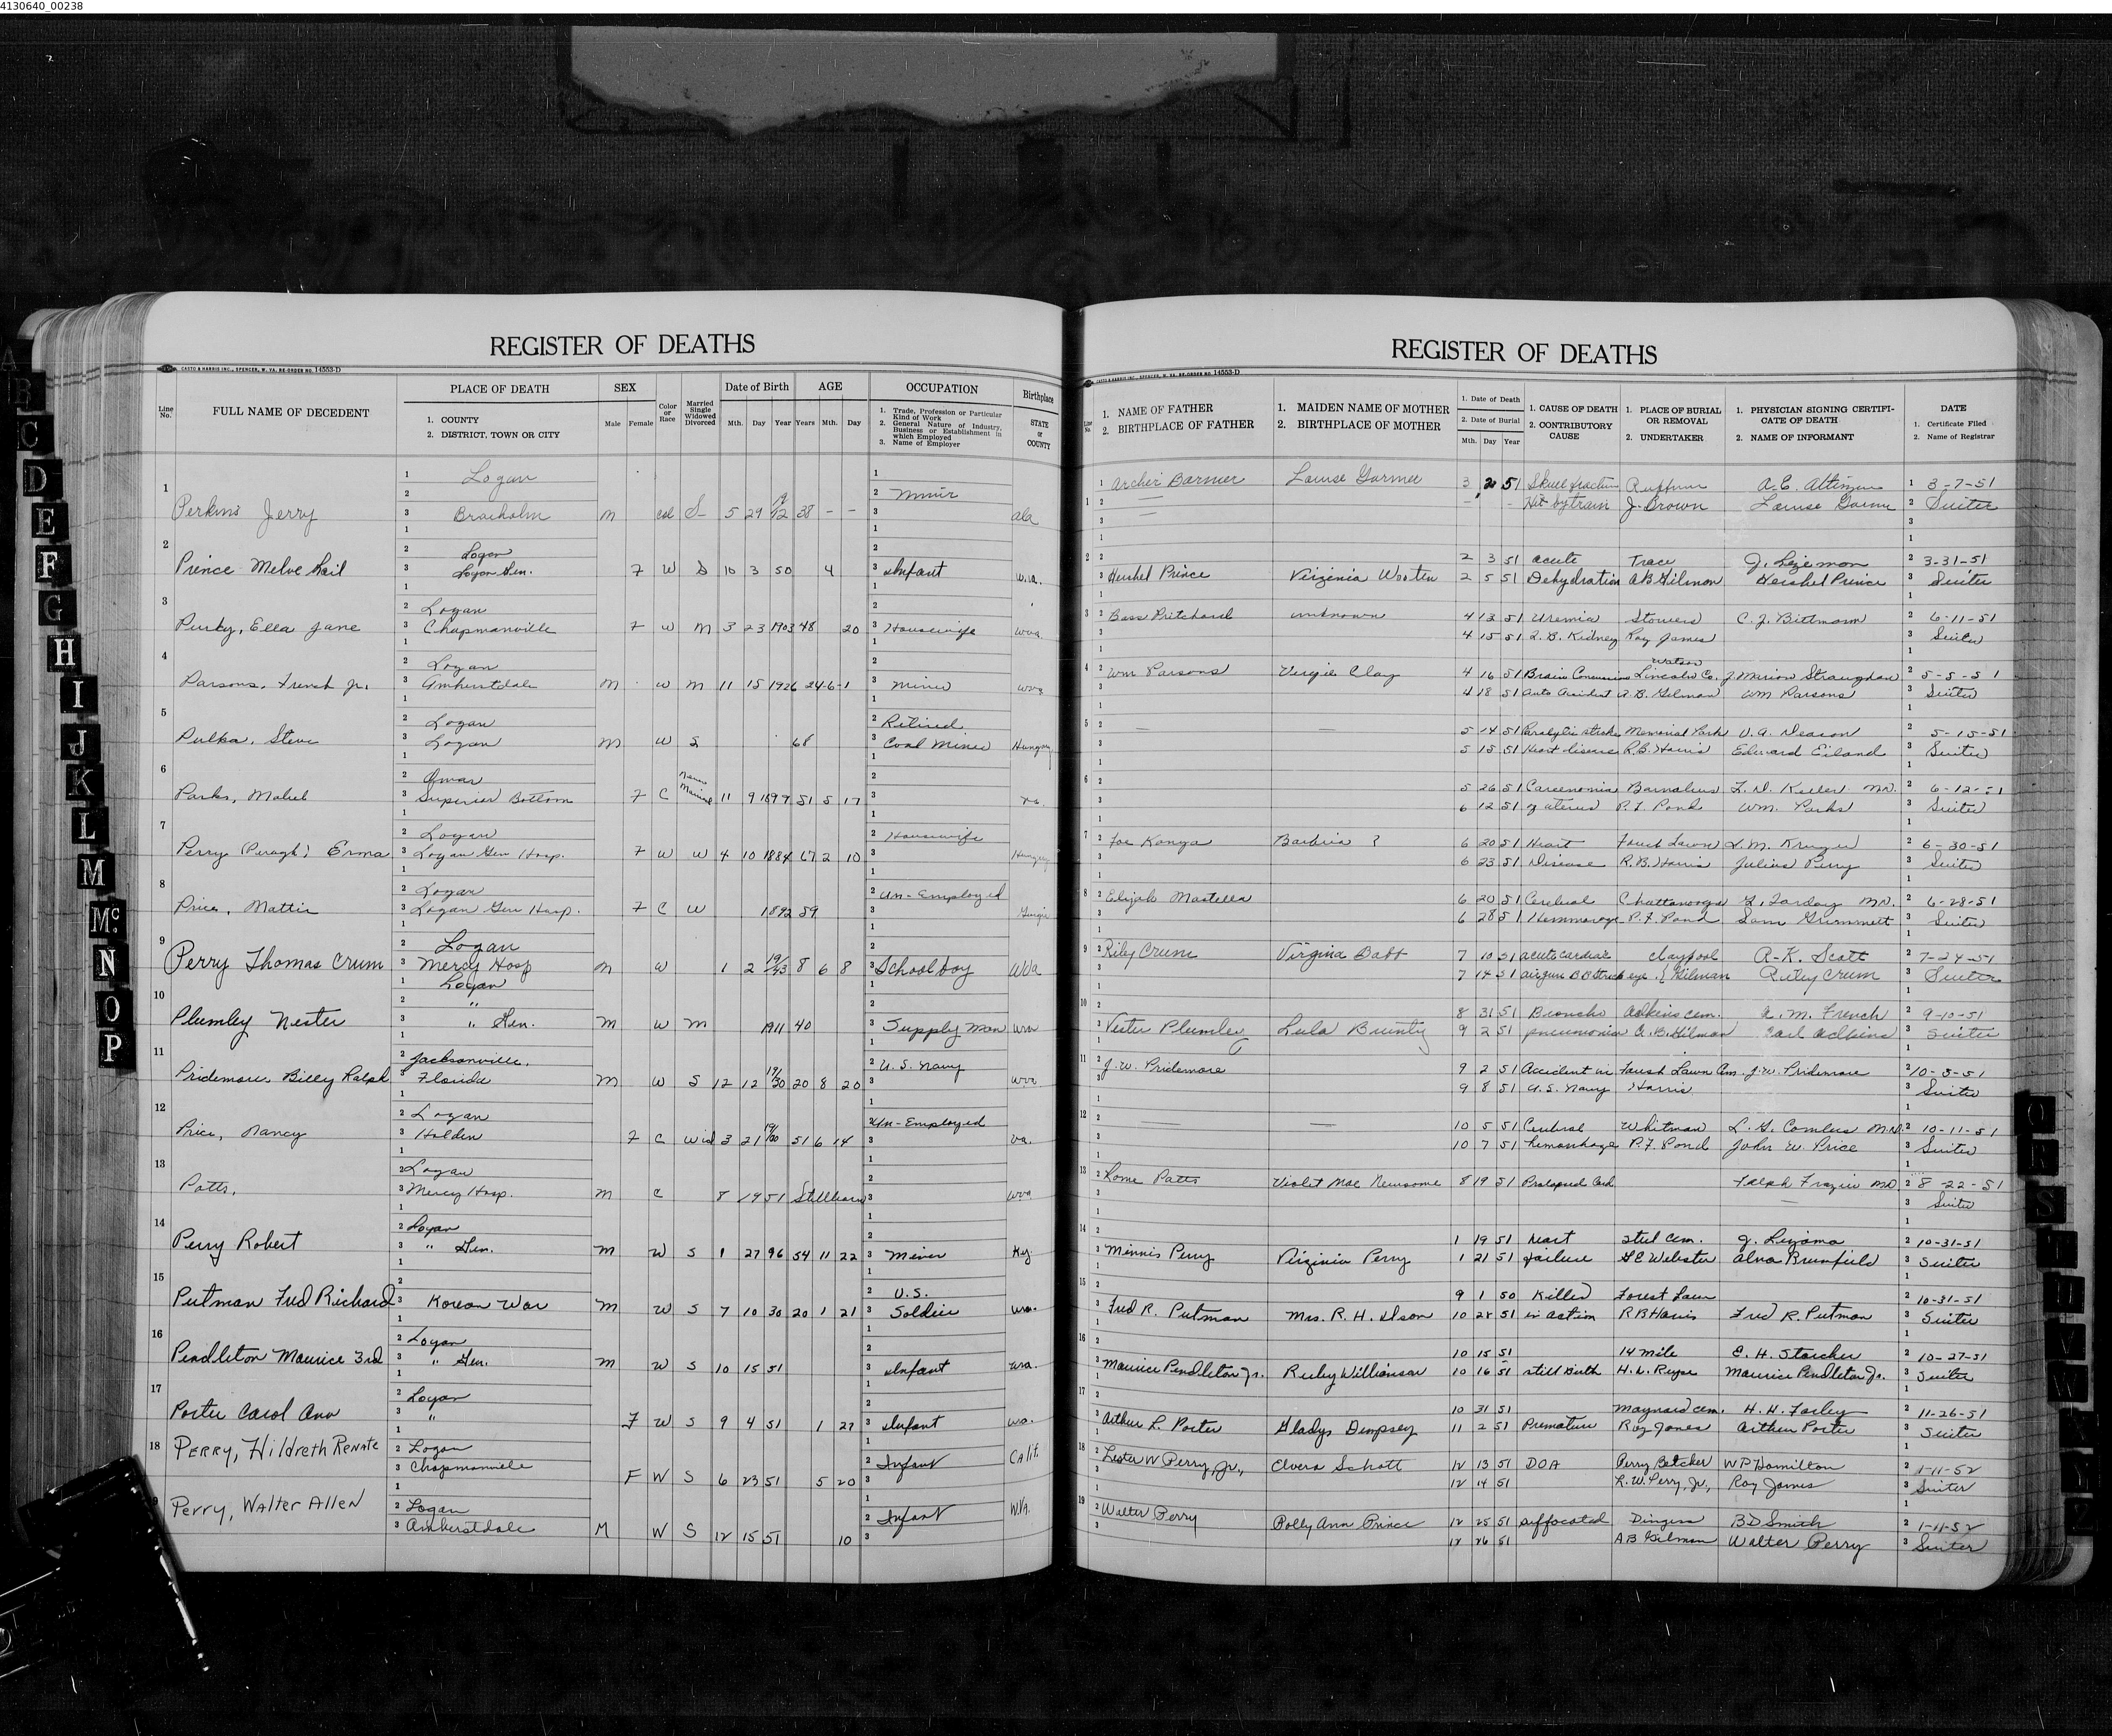 4130640_00238
REGISTER OF DEATHS
CASTO & HARRIS INC., SPENCER, W. VA. RE-ORDER NO. 14553-D
Line No.
FULL NAME OF DECEDENT
PLACE OF DEATH
1. COUNTY
2. DISTRICT, TOWN OR CITY
SEX
Male Female
Color or Race
Married Single Widowed Divorced
Date of Birth
Mth. Day Year
AGE
Years Mth. Day
OCCUPATION
1. Trade, Profession or Particular Kind of Work
2. General Nature of Industry, Business or Establishment in which Employed
3. Name of Employer
Birthplace
STATE or COUNTY
1 Perkins Jerry Logan Braeholm M Col S 5 29 19/12 38 - - Miner Ala
2 Prince Melve Gail Logan Logan Gen. F W S 10 3 50 4 Infant W.Va.
3 Ella Jane Logan Chapmanville F W M 3 23 1903 48 20 Housewife WVa
4 Parsons, French Jr. Logan Amherstdale M W M 11 15 1926 24-6-1 Miner WVa
5 Pulka, Steve Logan Logan M W S 68 Retired Coal Miner Hungary
6 Parks, Mabel Omar Superior Bottom F C Married 11 9 1899 51 5 17
7 Perry Erma Logan Logan Gen Hosp. F W W 4 10 1884 67 2 10 Housewife Hungary
8 Price, Mattie Logan Logan Gen Hosp. F C W 1892 59 Un-Employed Georgia
9 Perry Thomas Crum Logan Mercy Hosp M W 1 2 19/43 8 6 8 School boy WVa
10 Plumley Nester Logan " " Gen. M W M 1911 40 Supply Man WVa
11 Pridemore, Billy Ralph Jacksonville, Florida M W S 12 12 19/30 20 8 20 U.S. Navy WVa
12 Price, Nancy Logan Holden F C Wid 3 21 51 6 14 Un-Employed Va.
13 Potts, Logan Mercy Hosp. M C 8 19 51 Stillborn WVa
14 Perry Robert Logan " Gen. M W S 1 27 96 54 11 22 Miner Ky
15 Putman Fred Richard Korean War M W S 7 10 30 20 1 21 U.S. Soldier WVa.
16 Pendleton Maurice 3rd Logan " Gen. M W S 10 15 51 Infant WVa.
17 Porter Carol Ann Logan " F W S 9 4 51 1 27 Infant
18 PERRY, Hildreth Renate Logan Chapmanville F W S 6 23 51 5 20 Infant Calif.
Perry, Walter Allen Logan Amherstdale M W S 12 15 51 10 Infant W.VA.
REGISTER OF DEATHS
CASTO & HARRIS INC., SPENCER, W. VA. RE-ORDER NO. 14553-D
Line No.
1. NAME OF FATHER
2. BIRTHPLACE OF FATHER
1. MAIDEN NAME OF MOTHER
2. BIRTHPLACE OF MOTHER
1. Date of Death
2. Date of Burial
Mth. Day Year
1. CAUSE OF DEATH
2. CONTRIBUTORY CAUSE
1. PLACE OF BURIAL OR REMOVAL
2. UNDERTAKER
1. PHYSICIAN SIGNING CERTIFICATE OF DEATH
2. NAME OF INFORMANT
DATE
1. Certificate Filed
2. Name of Registrar
1 Archer Louise 3 51 Skull fracture Ruffner A.E. 3-7-51
Hit by train J. Brown Louise Suiter
2 2 3 51 Acute Trace 3-31-51
Hershel Prince Virginia Wooten 2 5 51 Dehydration AB Gilman Hershel Prince Suiter
3 Bass Pritchard unknown 4 13 51 Uremia Stowers C. J. 6-11-51
4 15 51 Kidney Roy James Suiter
4 Wm Parsons Virgie Clay 4 16 51 Brain Watson Lincoln Co. J Marion Straughan 5-5-51
4 18 51 Auto Accident A.B. Gilman Wm Parsons Suiter
5 — — 5 14 51 Paralytic stroke Memorial Park V.A. Deason 5-15-51
5 15 51 Heart disease R.B. Harris Edward Eiland Suiter
6 5 26 51 Barnabus MD. 6-12-51
6 12 51 of uterus P.F. Pond Wm. Parks Suiter
7 Joe Konya Barbria ? 6 20 51 Heart Forest Lawn 6-30-51
6 23 51 Disease R.B. Harris Julius Perry Suiter
8 Elijah 6 20 51 Cerebral Chattanooga MD. 6-28-51
6 28 51 Hemmorage P.F. Pond Sam Suiter
9 Riley Crum Virginia 7 10 51 acute cardiac Claypool A-K. Scott 7-24-51
7 14 51 Gilman Riley Crum Suiter
10 8 31 51 Broncho Adkins Cem. A. M. French 9-10-51
Vester Plumley Lula Brunty 9 2 51 pneumonia A.B. Gilman Carl Adkins Suiter
11 J.W. Pridemore 9 2 51 Accident in Forest Lawn Cem. J.W. Pridemore 10-5-51
9 8 51 U.S. Navy Harris Suiter
12 — — 10 5 51 Whitman M.D. 10-11-51
10 7 51 hemorrhage P.F. Pond John W. Price Suiter
13 Potts Violet Mae Newsome 8 19 51 Prolapsed Cord Ralph Frazier MD. 8-22-51
Suiter
14 1 19 51 heart Cem. 10-31-51
Minnis Perry Virginia Perry 1 21 51 failure Webster Alva Brumfield Suiter
15 9 1 50 Killed Forest Lawn 10-31-51
Fred R. Putman Mrs. R. H. 10 28 51 in action R B Harris Fred R. Putman Suiter
16 10 15 51 14 mile E. H. Starcher 10-27-51
Maurice Pendleton Jr. Ruby Williamson 10 16 51 still birth Maurice Pendleton Jr. Suiter
17 10 31 51 Maynard Cem. H. H. Farley 11-26-51
Arthur L. Porter Gladys Dempsey 11 2 51 Premature Roy Jones Arthur Porter Suiter
18 Lester W Perry, Jr., Elvera Schott 12 13 51 DOA Perry WP Hamilton 1-11-52
12 14 51 L. W. Perry, Jr., Roy James Suiter
19 Walter Perry Polly Ann Prince 12 25 51 suffocated Dingess BD Smith 1-11-52
12 26 51 AB Gilman Walter Perry Suiter
A B C D E F G H I J K L M Mc N O P
Q R S T U V W X Y Z